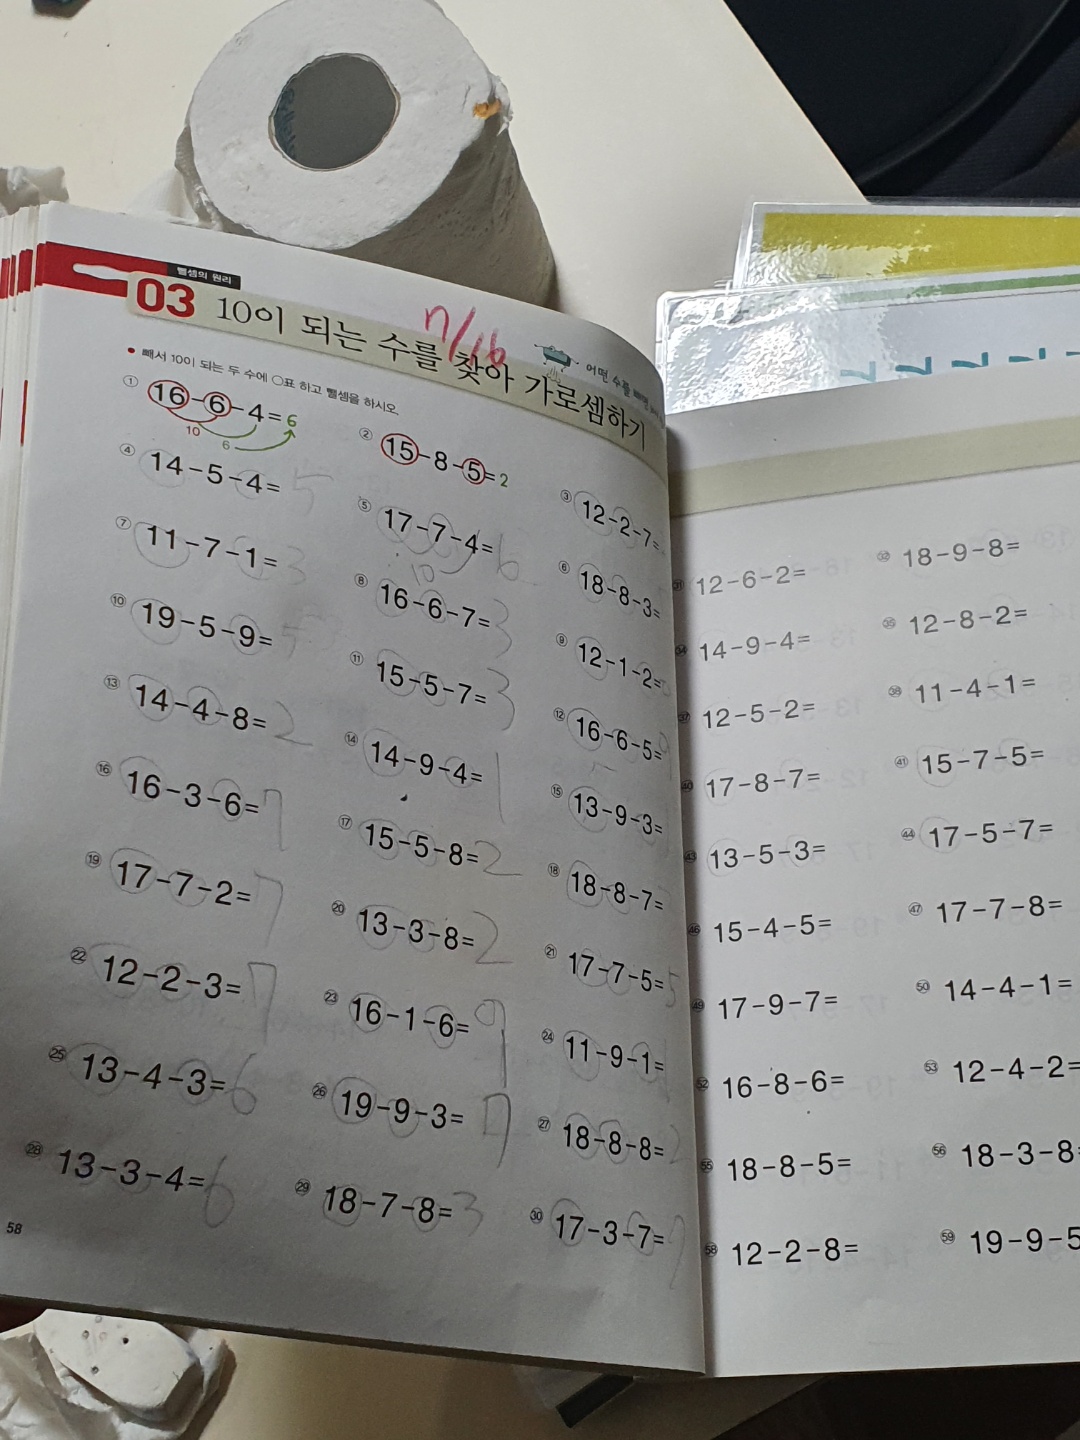 뺄셈의 원리
03 10이 되는 수를 찾아 가로셈하기
7/16
어떤 수를
• 빼서 10이 되는 두 수에 ○표 하고 뺄셈을 하시오.
① 16-6-4=6
10
6
② 15-8-5=2
③ 12-2-7=
④ 14-5-4=5
⑤ 17-7-4=6
10
⑥ 18-8-3=
⑦ 11-7-1=3
⑧ 16-6-7=3
⑨ 12-1-2=
⑩ 19-5-9=5
⑪ 15-5-7=3
⑫ 16-6-5=
⑬ 14-4-8=2
⑭ 14-9-4=1
⑮ 13-9-3=
⑯ 16-3-6=7
⑰ 15-5-8=2
⑱ 18-8-7=
⑲ 17-7-2=7
⑳ 13-3-8=2
㉑ 17-7-5=5
㉒ 12-2-3=7
㉓ 16-1-6=9
㉔ 11-9-1=
㉕ 13-4-3=6
㉖ 19-9-3=7
㉗ 18-8-8=2
㉘ 13-3-4=6
㉙ 18-7-8=3
㉚ 17-3-7=
58
㉛ 12-6-2=
㉜ 18-9-8=
㉞ 14-9-4=
㉟ 12-8-2=
㊲ 12-5-2=
㊳ 11-4-1=
㊵ 17-8-7=
㊶ 15-7-5=
㊸ 13-5-3=
㊹ 17-5-7=
㊻ 15-4-5=
㊼ 17-7-8=
㊾ 17-9-7=
㊿ 14-4-1=
52 16-8-6=
53 12-4-2=
55 18-8-5=
56 18-3-8=
58 12-2-8=
59 19-9-5